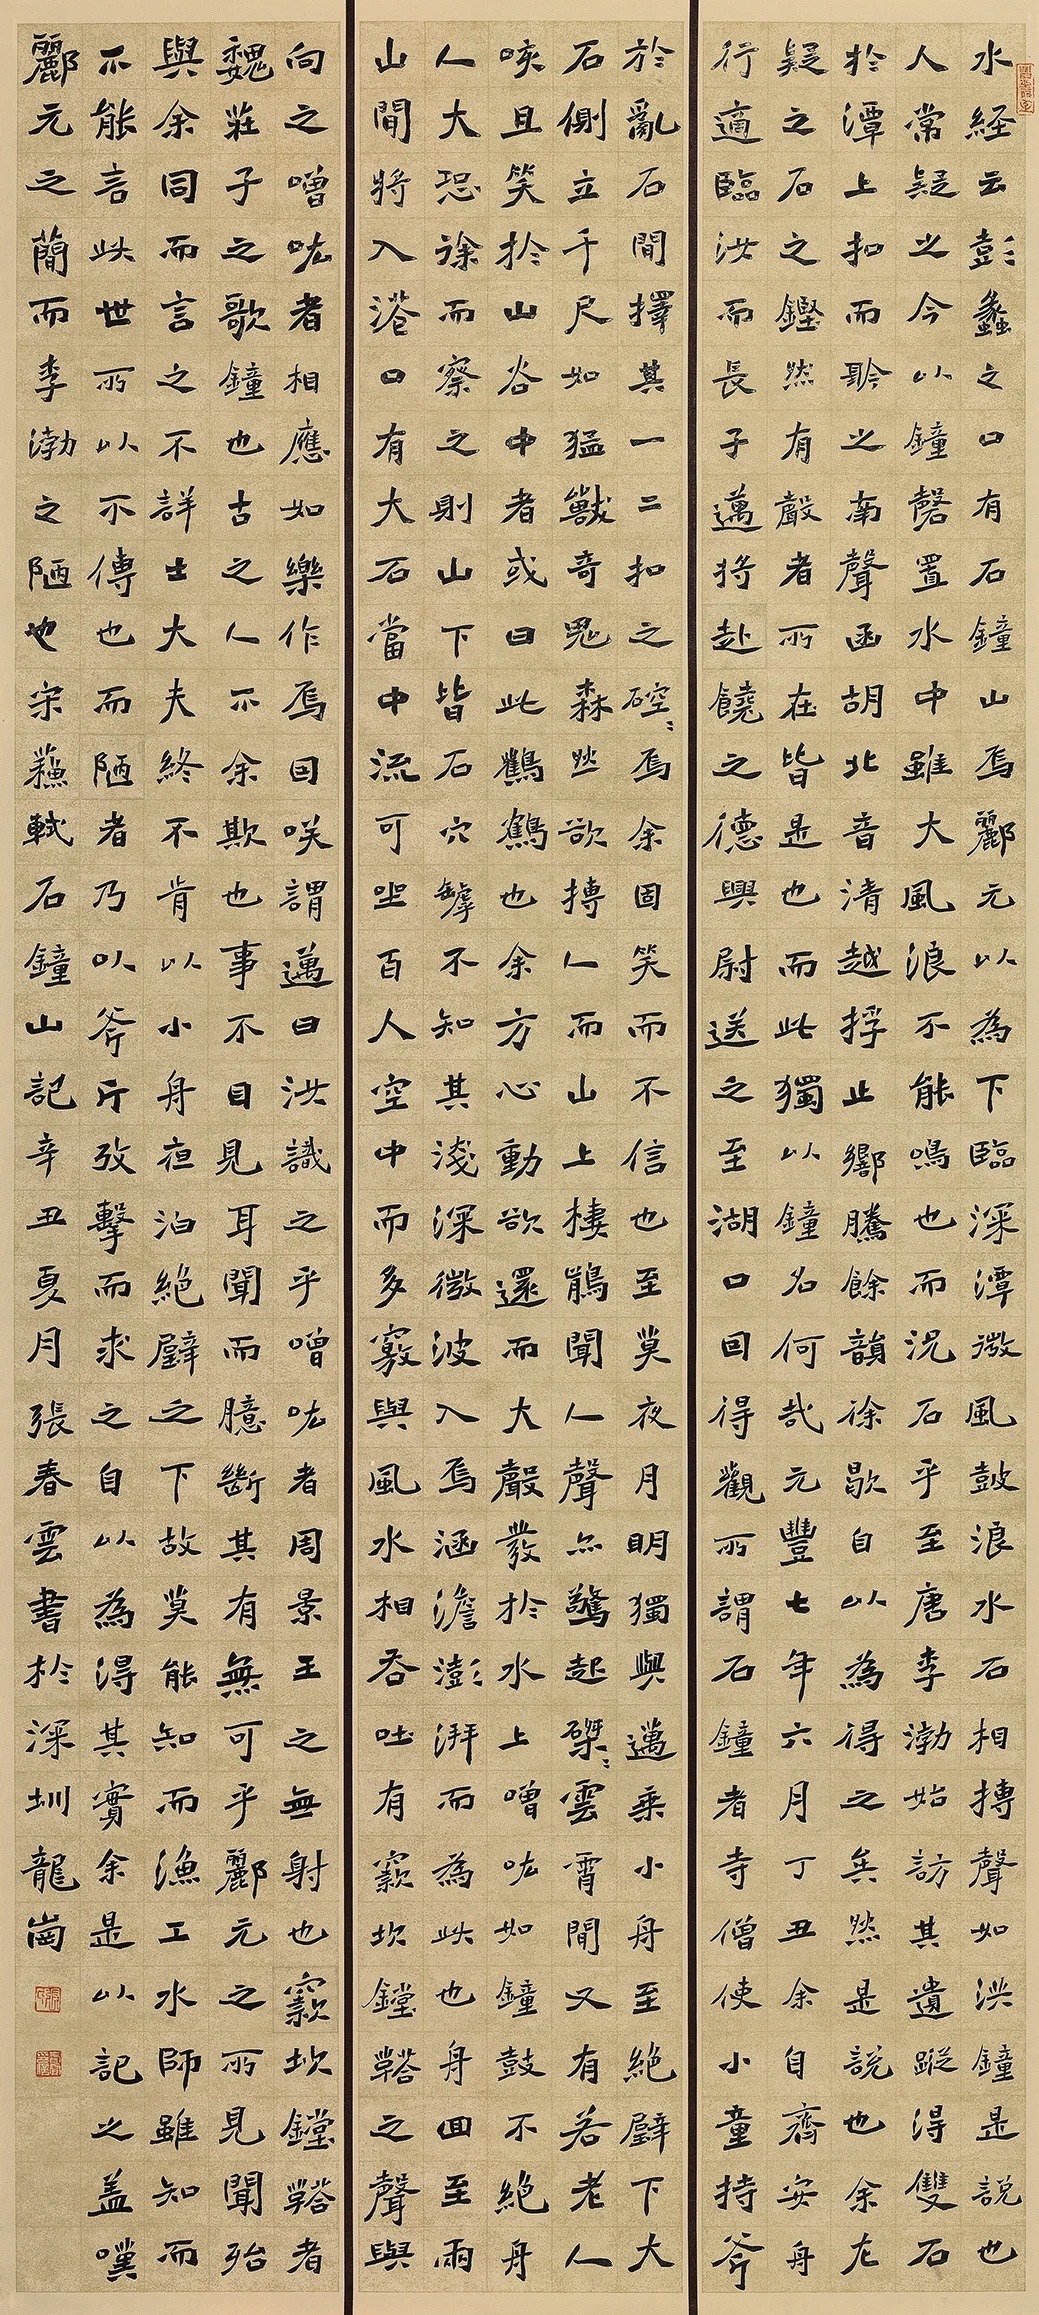 水経云彭蠡之口有石鐘山焉酈元以為下臨深潭微風鼓浪水石相搏聲如洪鐘是説也
人常疑之今以鐘磬置水中雖大風浪不能鳴也而況石乎至唐李渤始訪其遺蹤得雙石
於潭上扣而聆之南聲函胡北音清越桴止響騰餘韻徐歇自以為得之矣然是説也余尤
疑之石之鏗然有聲者所在皆是也而此獨以鐘名何哉元豐七年六月丁丑余自齊安舟
行適臨汝而長子邁將赴饒之德興尉送之至湖口因得觀所謂石鐘者寺僧使小童持斧
於亂石間擇其一二扣之硿〻焉余固笑而不信也至莫夜月明獨與邁乘小舟至絕壁下大
石側立千尺如猛獸奇鬼森然欲搏人而山上棲鶻聞人聲亦驚起磔〻雲霄間又有若老人
咳且笑於山谷中者或曰此鸛鶴也余方心動欲還而大聲發於水上噌吰如鐘鼓不絕舟
人大恐徐而察之則山下皆石穴罅不知其淺深微波入焉涵澹澎湃而為此也舟囬至兩
山間將入港口有大石當中流可坐百人空中而多竅與風水相吞吐有窾坎鏜鞳之聲與
向之噌吰者相應如樂作焉因笑謂邁曰汝識之乎噌吰者周景王之無射也窾坎鏜鞳者
魏莊子之歌鐘也古之人不余欺也事不目見耳聞而臆斷其有無可乎酈元之所見聞殆
與余同而言之不詳士大夫終不肯以小舟夜泊絕壁之下故莫能知而漁工水師雖知而
不能言此世所以不傳也而陋者乃以斧斤攷擊而求之自以為得其實余是以記之蓋嘆
酈元之簡而李渤之陋也宋蘇軾石鐘山記辛丑夏月張春雲書於深圳龍崗